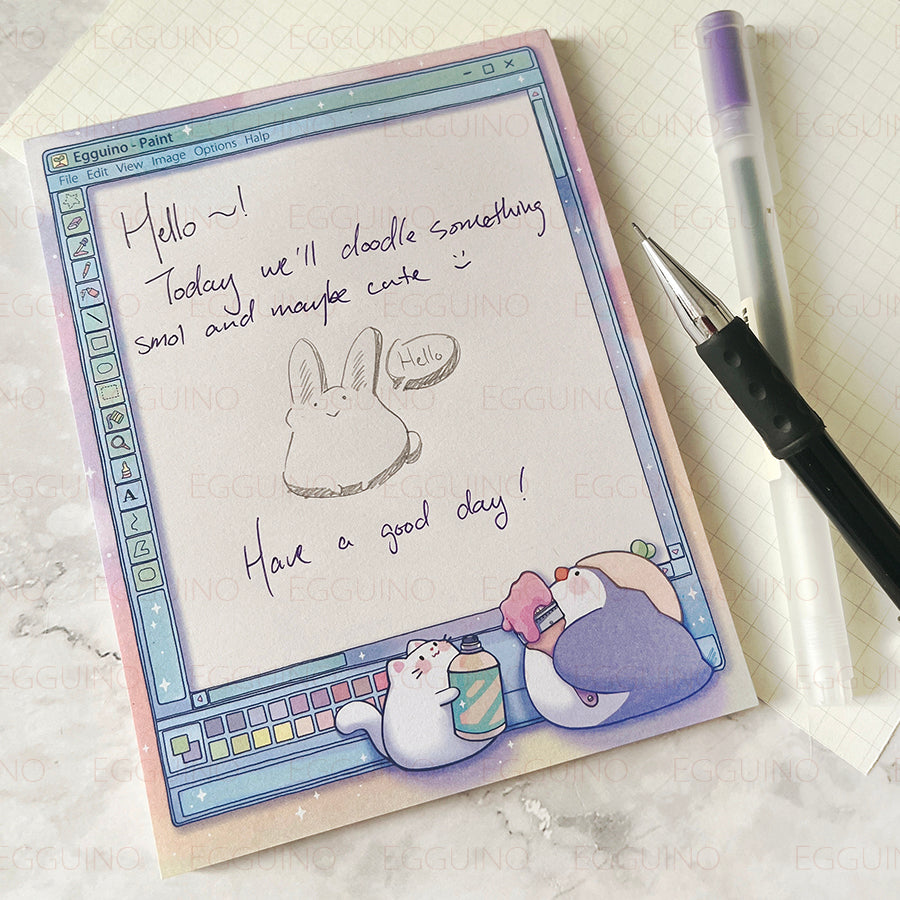 Egguino - Paint
File Edit View Image Options Halp
Hello ~!
Today we'll doodle something
smol and maybe cute :)
Hello
Have a good day!
A
EGGUINO